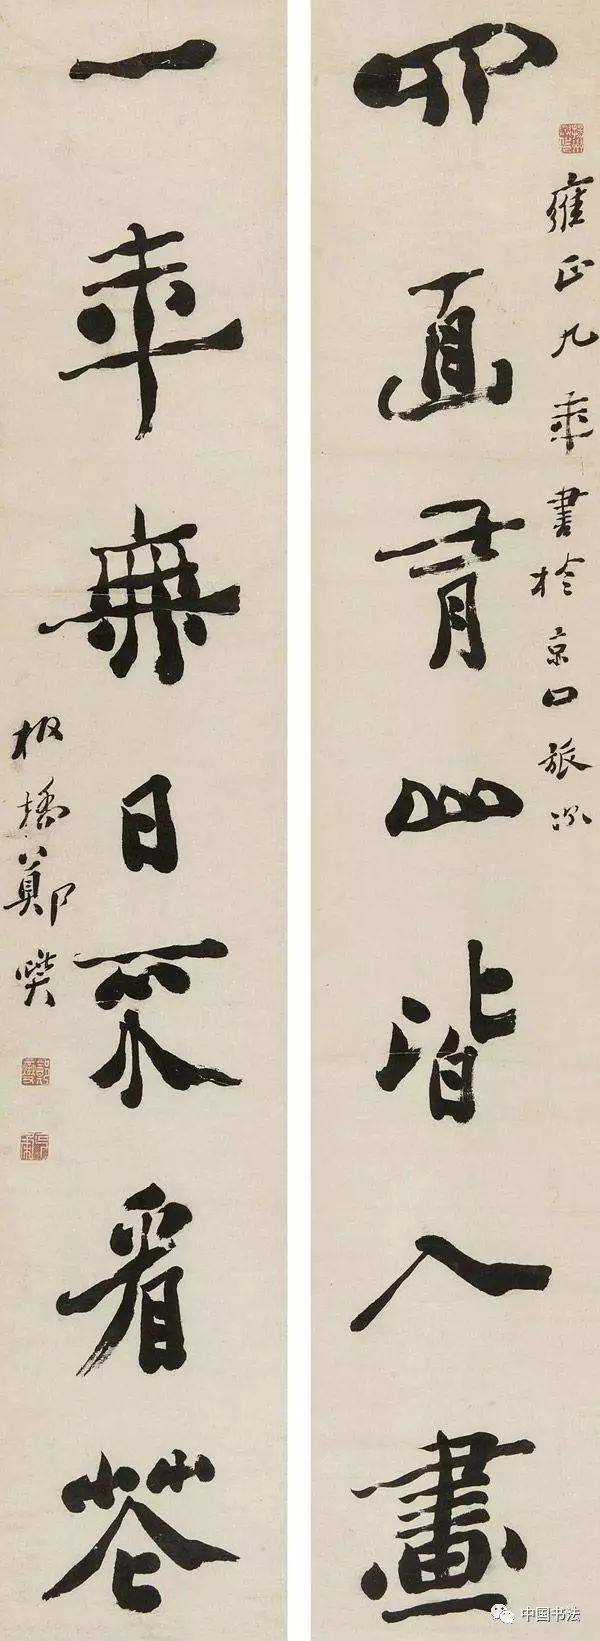 雍正九年書於京口旅次
四面青山皆入畫
一年無日不看花
板橋鄭燮
中国书法